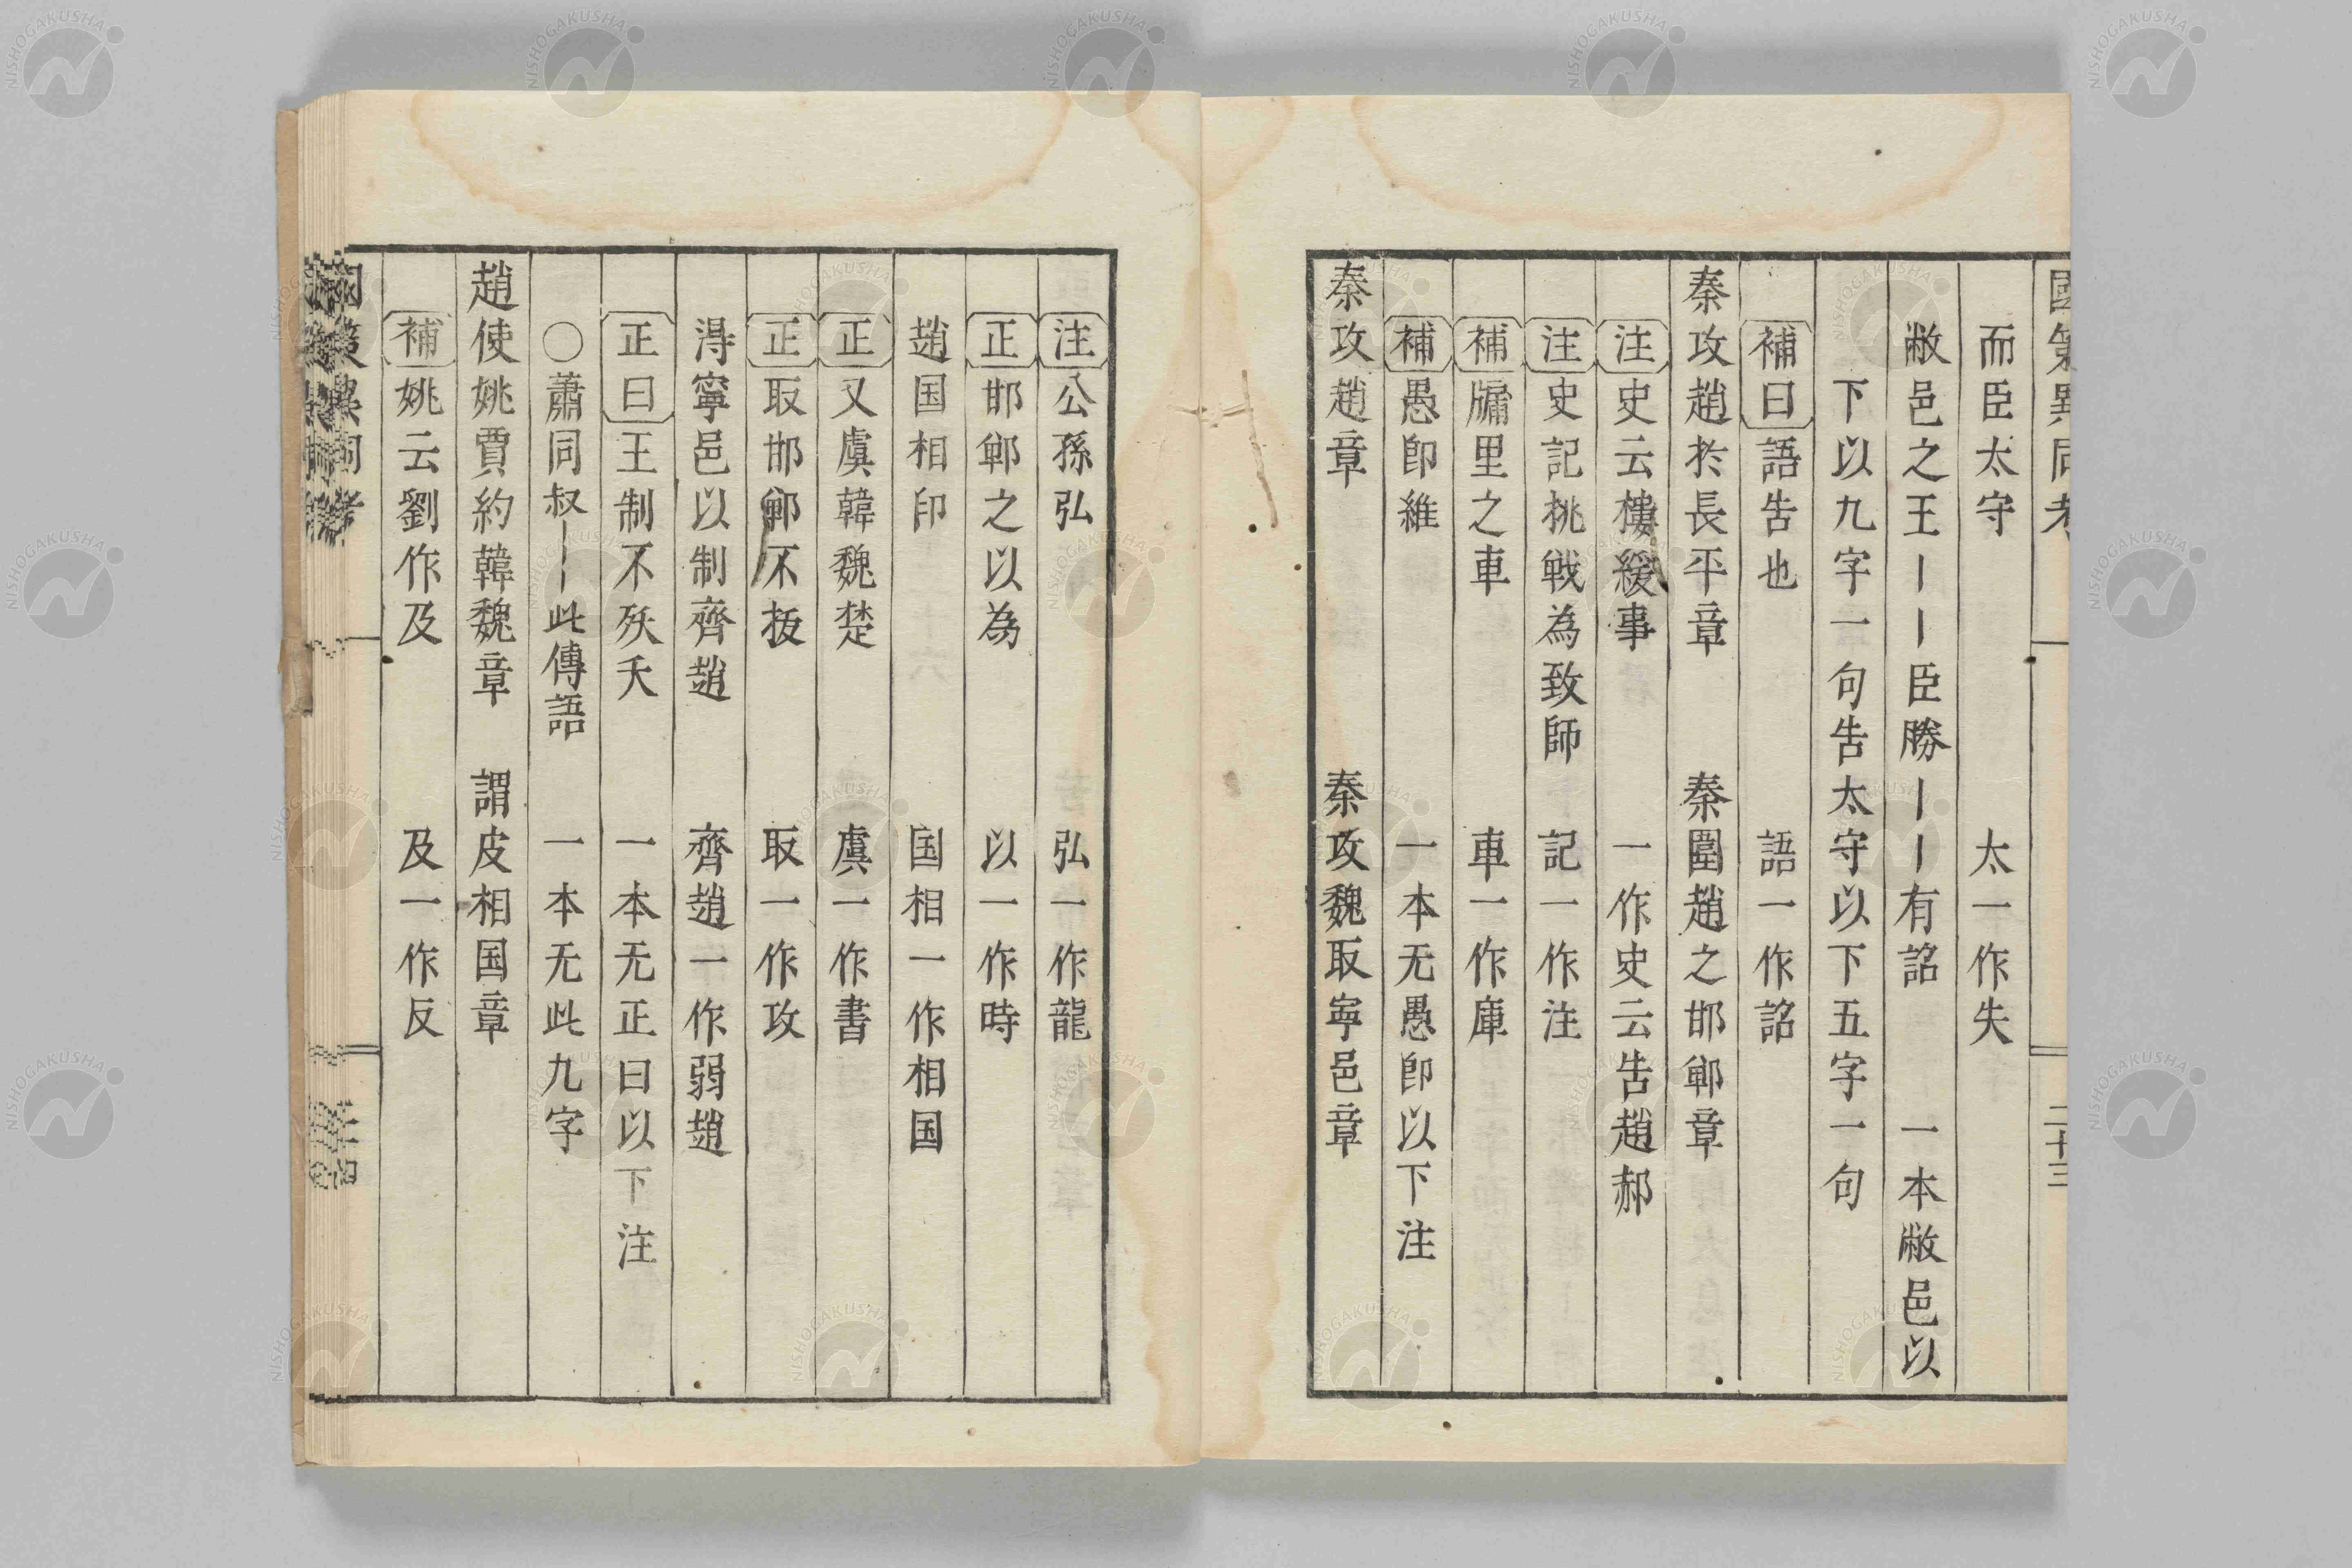 國策異同考 二十三
而臣太守 太一作失
敝邑之王ーーー臣勝ーーー有詔 一本敝邑以
下以九字一句告太守以下五字一句
補曰語告也 語一作詔
秦攻趙於長平章 秦圍趙之邯鄲章
注史云樓緩事 一作史云告趙郝
注史記挑戦為致師 記一作注
補牖里之車 車一作庫
補愚卽維 一本无愚卽以下注
秦攻趙章 秦攻魏取寧邑章
注公孫弘 弘一作龍
正邯鄲之以為 以一作時
趙国相印 国相一作相国
正又虞韓魏楚 虞一作書
正取邯鄲不拔 取一作攻
淂寧邑以制齊趙 齊趙一作弱趙
正曰王制不殀夭 一本无正曰以下注
○蕭同叔ーー此傳語 一本无此九字
趙使姚賈約韓魏章 謂皮相国章
補姚云劉作及 及一作反
國策異同考
NISHOGAKUSHA